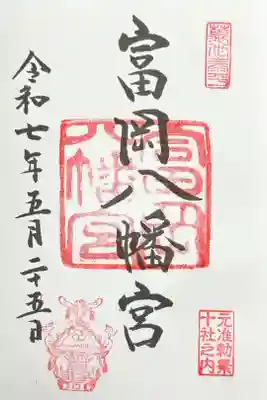 富岡八幡宮
富岡
八幡宮
元准勅祭
十社之内
令和七年五月二十五日